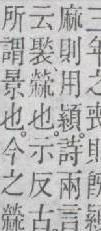 三年之喪則旣顈
麻則用顈。詩兩言
云褧檾也。示反古
所謂景也。今之檾